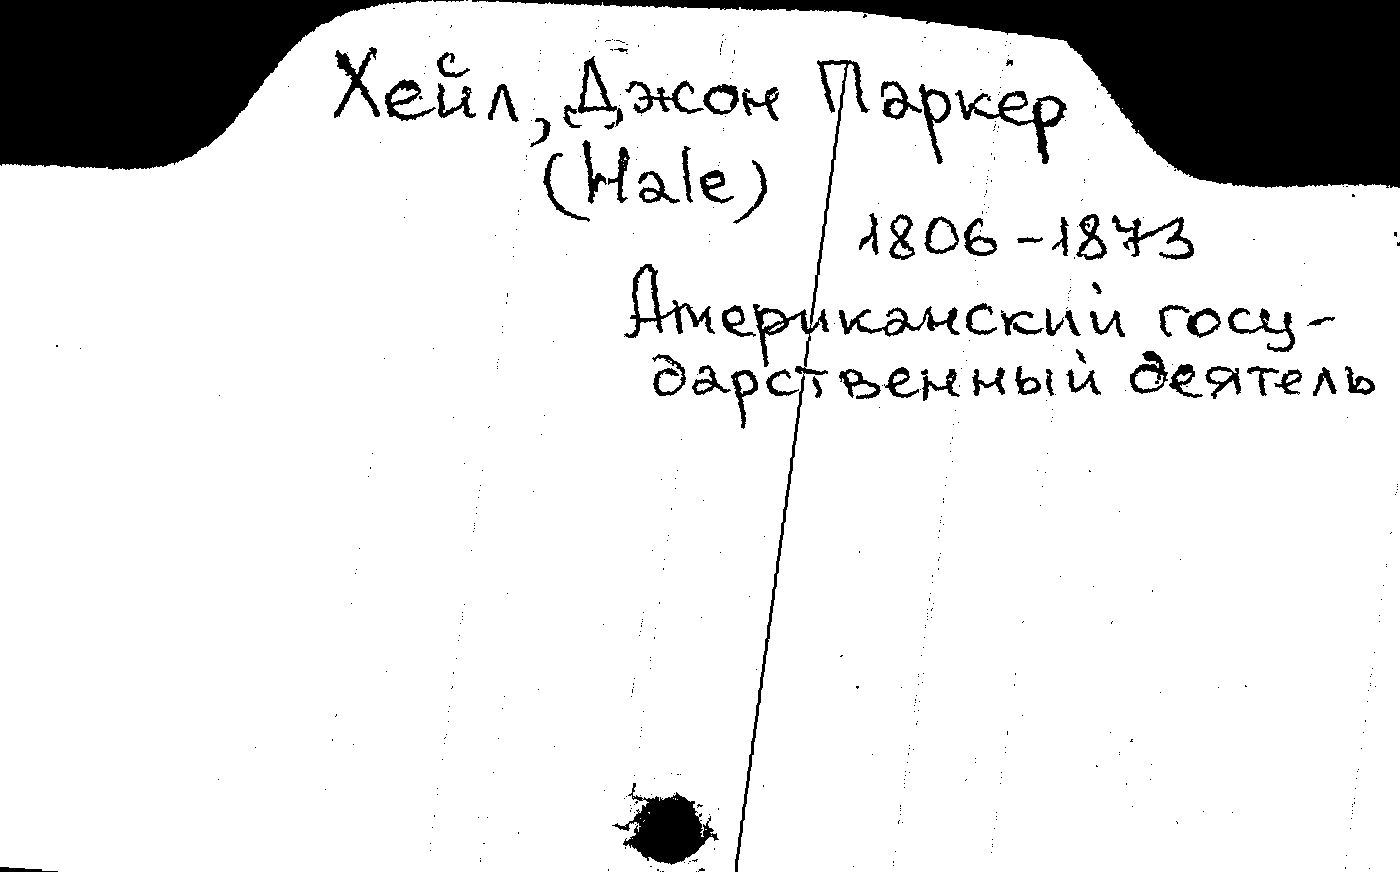 Хейл, Джон Паркер
(Hale)
1806-1873
Американский госу-
дарственный деятель